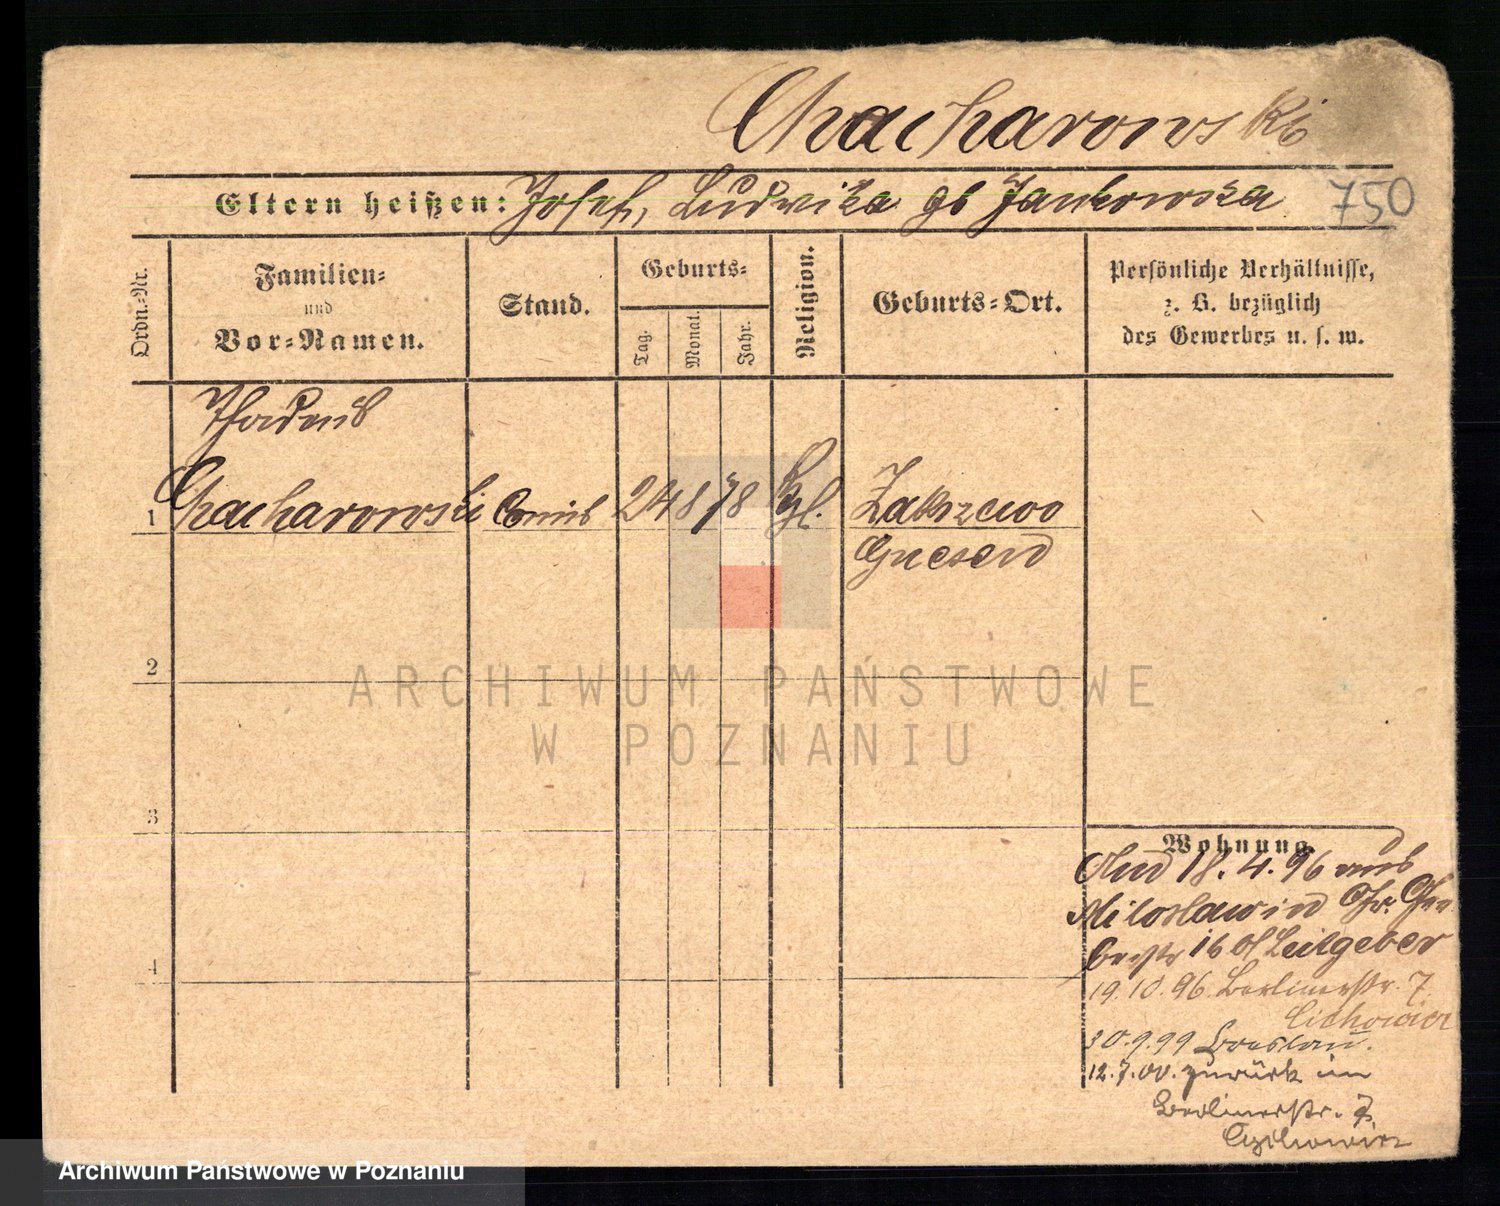 Chacharowski
Eltern heißen: Josef, Ludwika gb Jankowska 750
Ordn.-Nr.
Familien-
und
Vor-Namen.
Stand.
Geburts-
Tag.
Monat.
Jahr.
Religion.
Geburts-Ort.
Persönliche Verhältnisse,
z. B. bezüglich
des Gewerbes u. s. w.
Thadeus
1 Chacharowski Comis 24 8 78 Kgl. Zakrzewo
Gnesen
2
3
4
Wohnung.
And 18.4.96 aus
Miloslaw in Gr. Ger-
berstr 16 bf Leitgeber
19.10.96. Berlinerstr. 7
Cichowicz
30.9.99 Breslau.
12.7.00. zurück in
Berlinerstr. 7
Czichowicz
ARCHIWUM PAŃSTWOWE
W POZNANIU
Archiwum Państwowe w Poznaniu